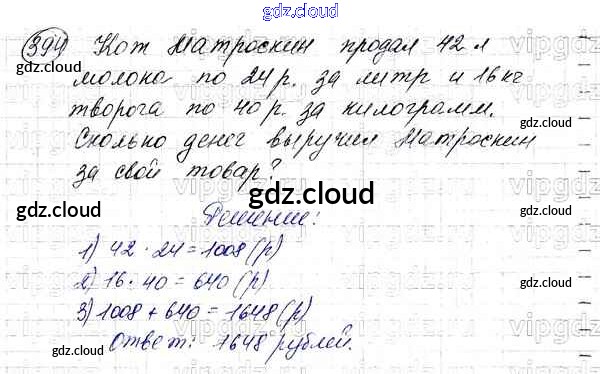 gdz.cloud
394 Кот Матроскин продал 42 л
молока по 24 р. за литр и 16 кг
творога по 40 р. за килограмм.
Сколько денег выручил Матроскин
за свой товар?
gdz.cloud
gdz.cloud
gdz.cloud
gdz.cloud
Решение:
1) 42 · 24 = 1008 (р)
2) 16 · 40 = 640 (р)
3) 1008 + 640 = 1648 (р)
Ответ: 1648 рублей.
gdz.cloud
gdz.cloud